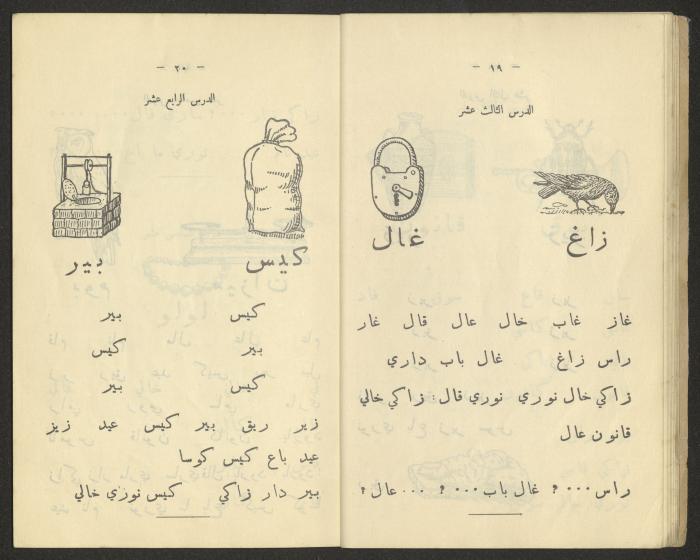 - ١٩ -
الدرس الثالث عشر
زاغ غال
غاز غاب خال عال قال غار
راس زاغ غال باب داري
زاكي خال نوري نوري قال : زاكي خالي
قانون عال
راس ٠٠٠ ؟ غال باب ٠٠٠ ؟ ٠٠٠ عال ؟
- ٢٠ -
الدرس الرابع عشر
كيس بير
كيس بير
بير كيس
كيس بير
زير ريق بير كيس عيد زيز
عيد باع كيس كوسا
بير دار زاكي كيس نوري خالي